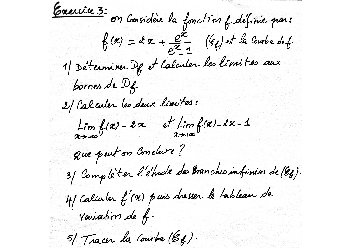 Exercice 3:
on Considère la fonction f définie par:
f(x) = 2x + e^x / (e^x - 1) (ℰf) est la Courbe de f.
1/ Déterminer Df et Calculer les limites aux
bornes de Df.
2/ Calculer les deux limites:
lim f(x) - 2x et lim f(x) - 2x - 1
x→-∞ x→+∞
que peut on Conclure ?
3/ Compléter l'étude des Branches infinies de (ℰf).
4/ Calculer f'(x) puis dresser le tableau de
Variation de f.
5/ Tracer la Courbe (ℰf).